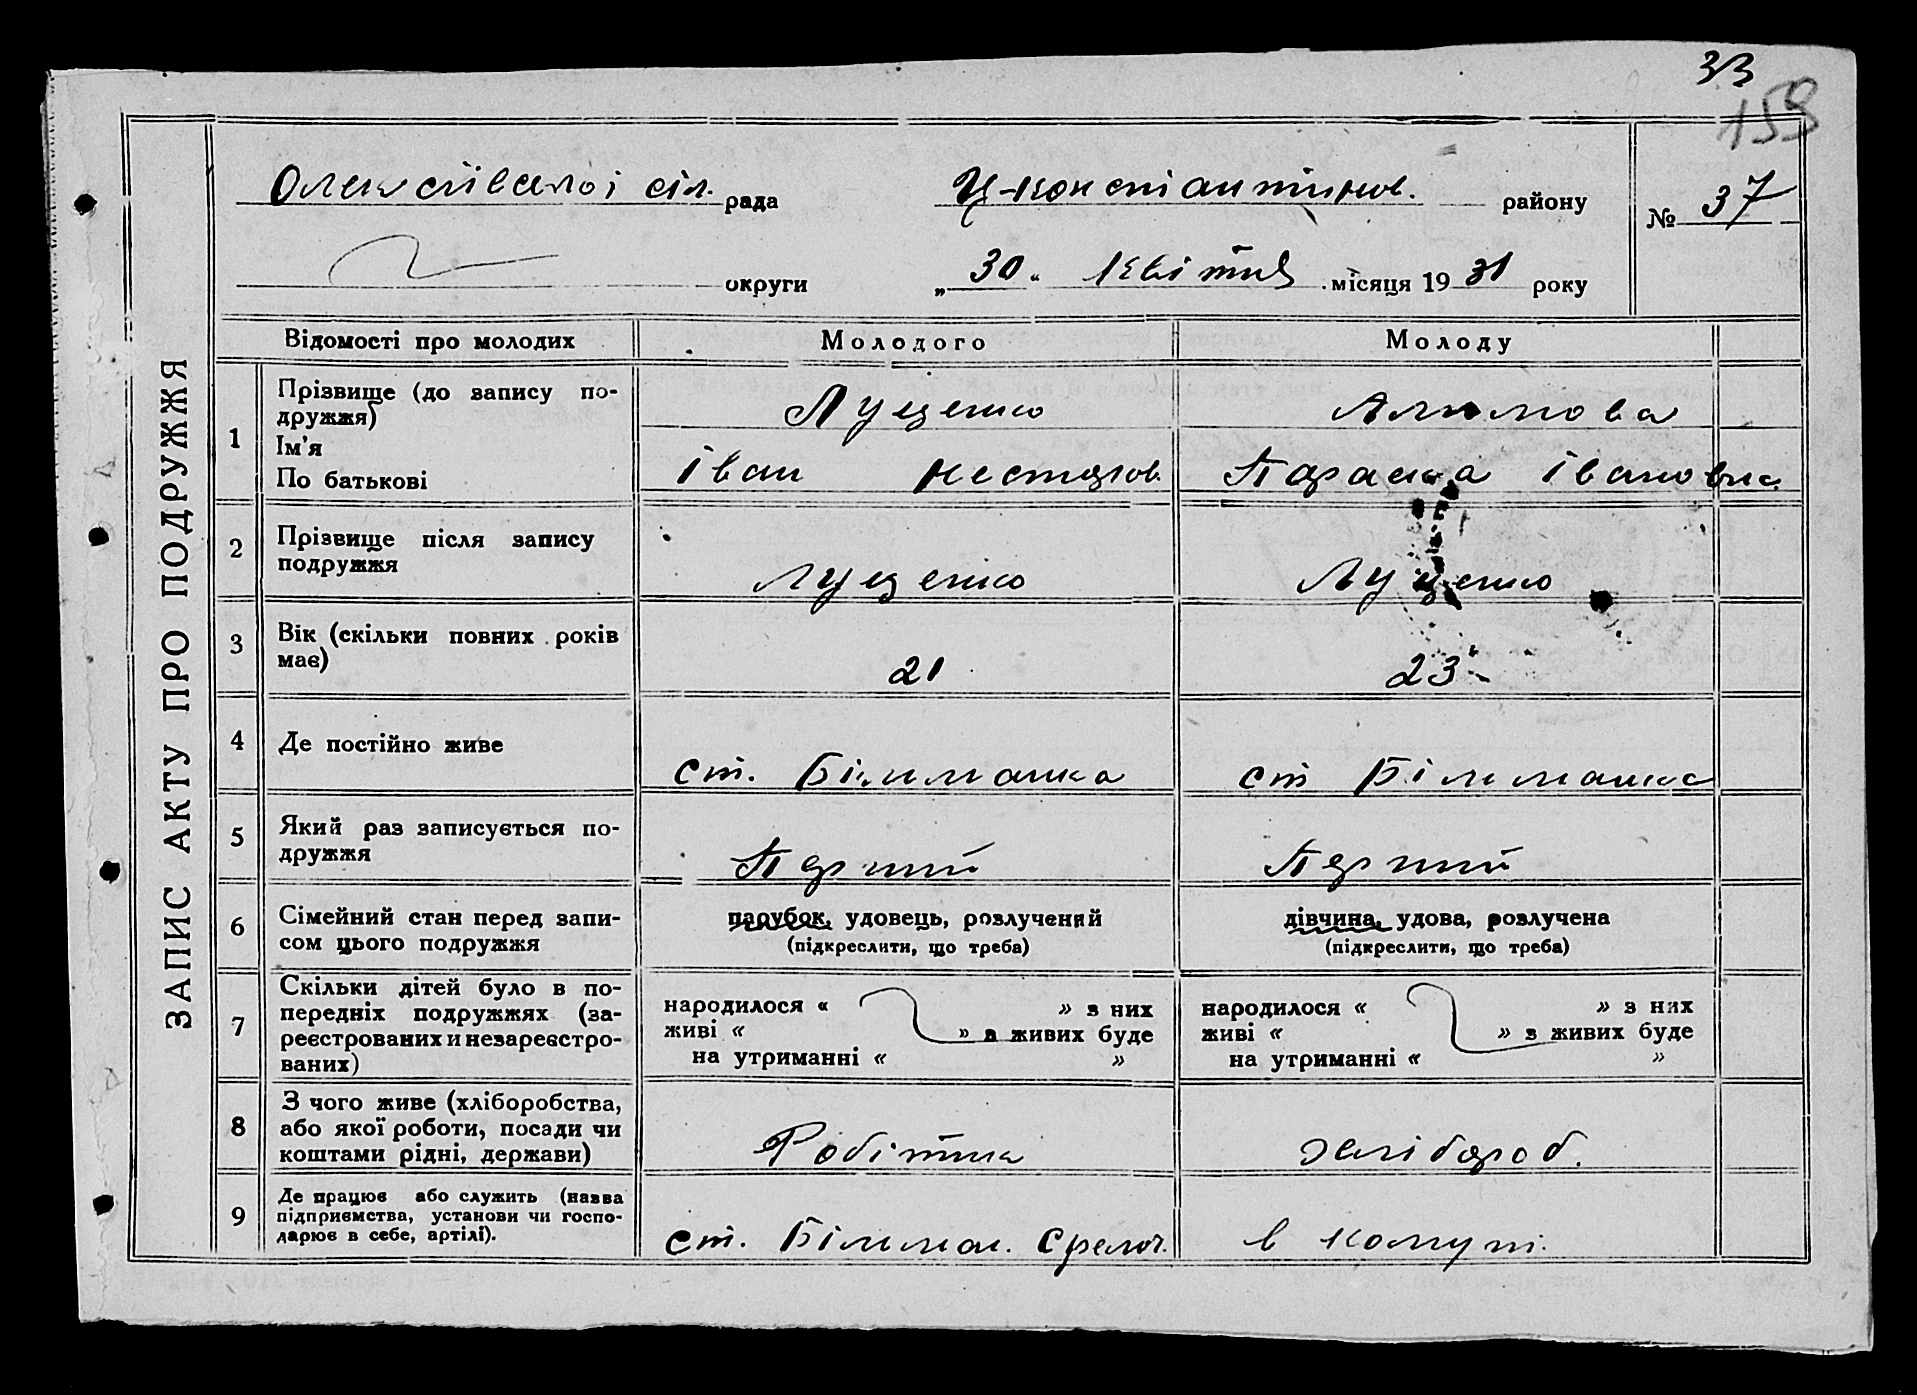 33
159
Олексіївської сіл. рада
Ц-Константинов. району
№ 37
округи
„30“ Квітня місяця 1931 року
ЗАПИС АКТУ ПРО ПОДРУЖЖЯ
Відомості про молодих
Молодого
Молоду
1
Прізвище (до запису по-
дружжя)
Ім'я
По батькові
Луценко
Іван Нестеров.
Алимова
Параска Івановна
2
Прізвище після запису
подружжя
Луценко
Луценко
3
Вік (скільки повних років
має)
21
23
4
Де постійно живе
ст. Більманка
ст Більманка
5
Який раз записується по-
дружжя
Перший
Перший
6
Сімейний стан перед запи-
сом цього подружжя
парубок, удовець, розлучений
(підкреслити, що треба)
дівчина, удова, розлучена
(підкреслити, що треба)
7
Скільки дітей було в по-
передніх подружжях (за-
реєстрованих и незареєстро-
ваних)
народилося « » з них
живі « » а живих буде
на утриманні « »
народилося « » з них
живі « » з живих буде
на утриманні « »
8
З чого живе (хліборобства,
або якої роботи, посади чи
коштами рідні, держави)
Робітник
хлібороб.
9
Де працює або служить (назва
підприємства, установи чи госпо-
дарює в себе, артілі).
ст. Більман.
в комуні.